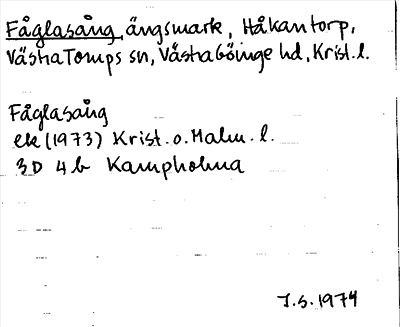 Fåglasång, ängsmark, Håkantorp,
Västra Tomps sn, Västra Göinge hd, Krist. l.
Fåglasång
ek (1973) Krist. o. Malm. l.
3D 4b Kampholma
I.S. 1974